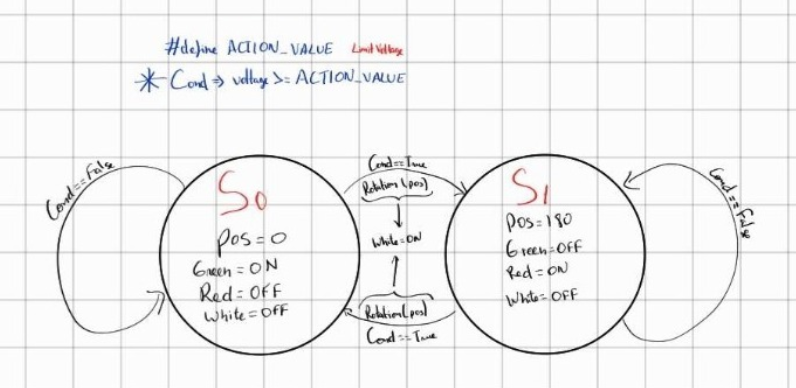 #define ACTION_VALUE Limit Voltage
* Cond => voltage >= ACTION_VALUE
Cond==False
S0
Pos=0
Green=ON
Red=OFF
White=OFF
Cond==True
Rotation(pos)
White=ON
Rotation(pos)
Cond==True
S1
Pos=180
Green=OFF
Red=ON
White=OFF
Cond==False